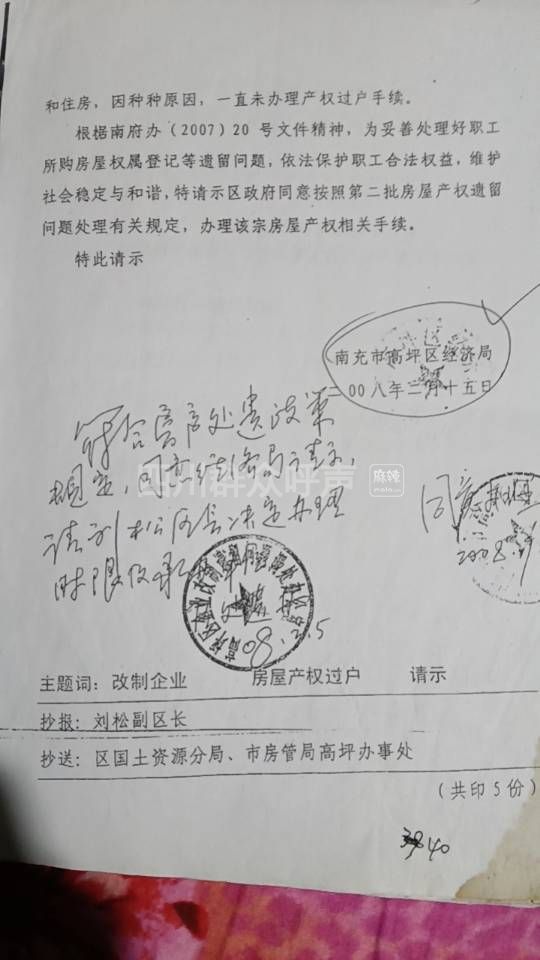 和住房，因种种原因，一直未办理产权过户手续。
根据南府办（2007）20 号文件精神，为妥善处理好职工
所购房屋权属登记等遗留问题，依法保护职工合法权益，维护
社会稳定与和谐，特请示区政府同意按照第二批房屋产权遗留
问题处理有关规定，办理该宗房屋产权相关手续。
特此请示
南充市高坪区经济局
二00八年二月十五日
符合房产处遗政策
规定，同意经济局请示，
请刘松区长决定办理
时限
同意
2008.
四川群众呼声
麻辣
主题词：改制企业 房屋产权过户 请示
抄报：刘松副区长
抄送：区国土资源分局、市房管局高坪办事处
（共印5份）
40